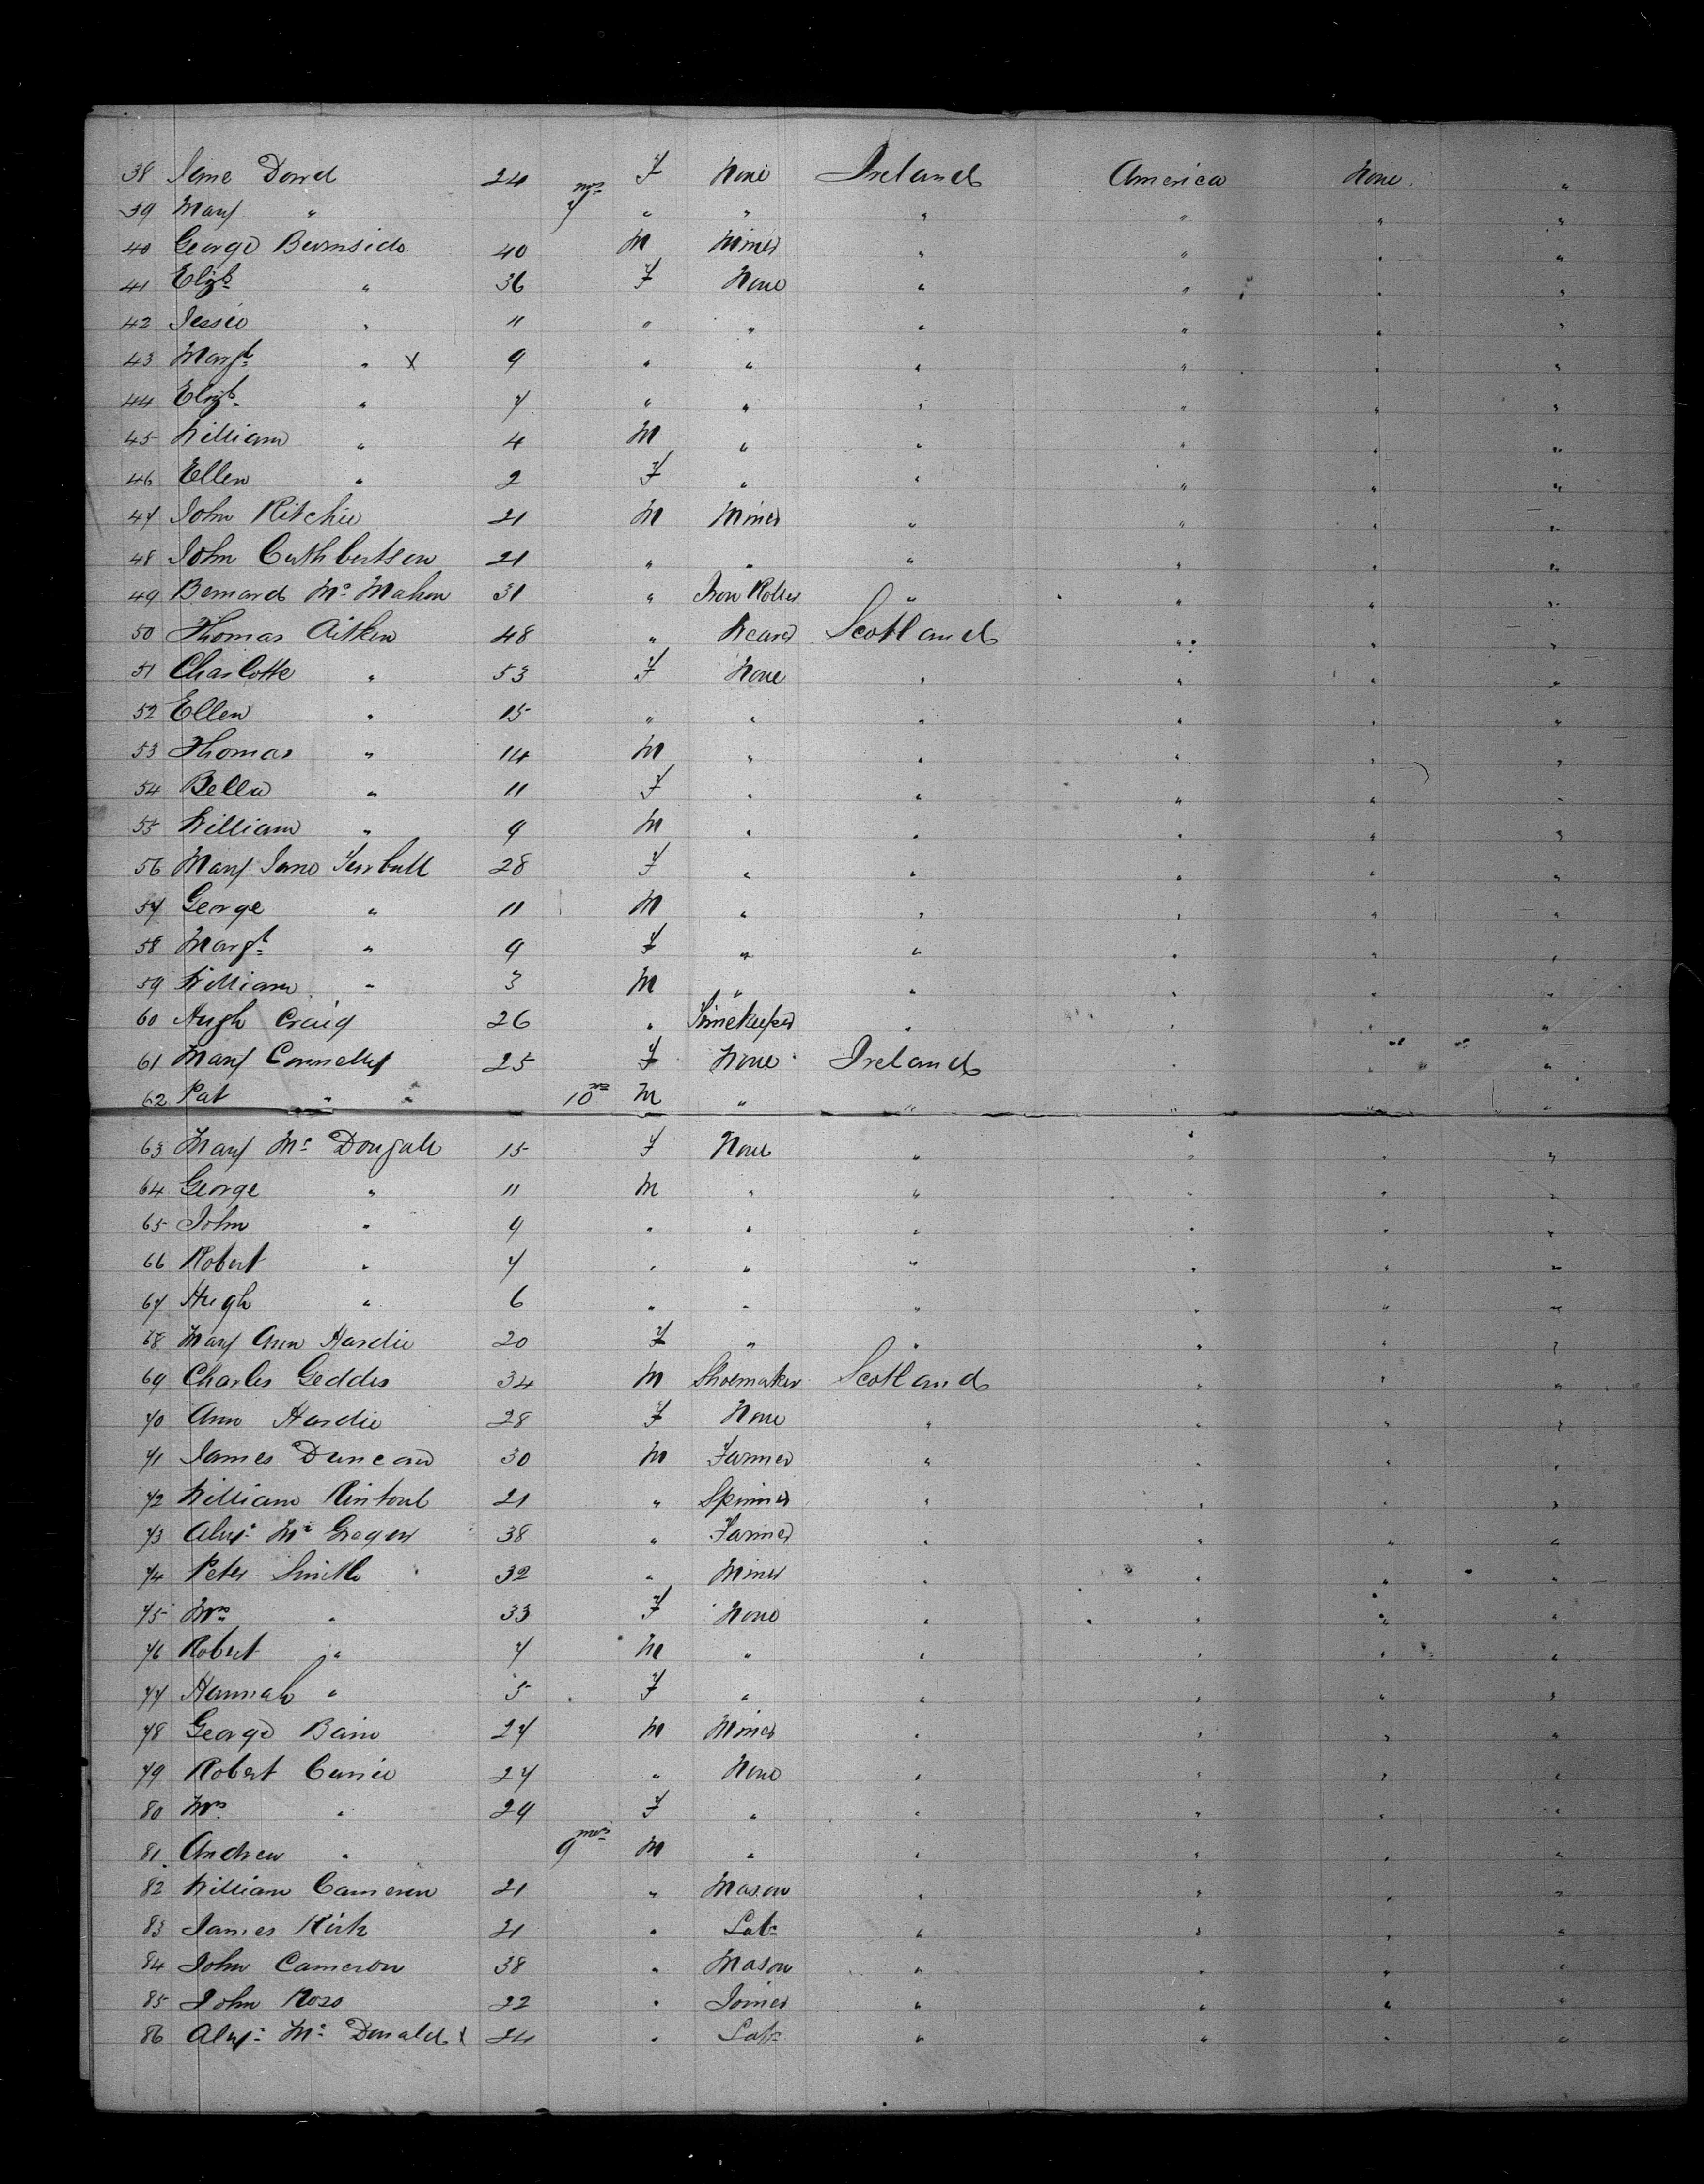 38 Jane Dowd 24 F None Ireland America None "
39 Mary " 7 mos " " " " " "
40 George Burnside 40 M Miner " " " "
41 Elizth " 36 F None " " " "
42 Jessie " 11 " " " " " "
43 Margt " X 9 " " " " " "
44 Elizth " 7 " " " " " "
45 William " 4 M " " " " "
46 Ellen " 2 F " " " " "
47 John Ritchie 21 M Miner " " " "
48 John Cuthbertson 21 " " " " " "
49 Bernard Mc Mahon 31 " Iron Roller " " " "
50 Thomas Aitken 48 " Scotland " " "
51 Charlotte " 53 F None " " " "
52 Ellen " 15 " " " " " "
53 Thomas " 14 M " " " " "
54 Bella " 11 F " " " " "
55 William " 9 M " " " " "
56 Mary Jane Turnbull 28 F " " " " "
57 George " 11 M " " " " "
58 Margt " 9 F " " " " "
59 William " 3 M " " " " "
60 Hugh Craig 26 " Timekeeper " " " "
61 Mary Connelly 25 F None Ireland " " "
62 Pat " " 10 mos M " " " " "
63 Mary Mc Dougall 15 F None " " " "
64 George " 11 M " " " " "
65 John " 9 " " " " " "
66 Robert " 7 " " " " " "
67 Hugh " 6 " " " " " "
68 Mary Ann Hardie 20 F " " " " "
69 Charles Geddes 34 M Shoemaker Scotland " " "
70 Ann Hardie 28 F None " " " "
71 James Duncan 30 M Farmer " " " "
72 William Rintoul 21 " Spinner " " " "
73 Alexr Mc Gregor 38 " Farmer " " " "
74 Peter Smith 32 " Miner " " " "
75 Mrs " 33 F None " " " "
76 Robert " 7 M " " " " "
77 Hannah " 5 F " " " " "
78 George Bain 27 M Miner " " " "
79 Robert Currie 27 " None " " " "
80 Mrs " 29 F " " " " "
81 Andrew " 9 mos M " " " " "
82 William Cameron 21 " Mason " " " "
83 James Kirk 21 " Labr " " " "
84 John Cameron 38 " Mason " " " "
85 John Ross 22 " Joiner " " " "
86 Alexr Mc Donald X 24 " Labr " " " "